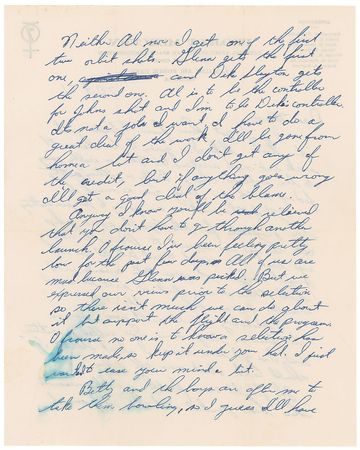 Neither Al nor I get one of the first
two orbit shots. Glenn gets the first
one, and Deke Slayton gets
the second one. Al is to be the controller
for Johns shot and I'm to be Deke's controller.
It's not a job I want. I have to do a
great deal of the work. I'll be gone from
home a lot and I don't get any of
the credit, but if anything goes wrong
I'll get a good deal of the blame.
Anyway I know you'll be relieved
that you don't have to go through another
launch. Of course I've been feeling pretty
low for the past few days. All of us are
mad because Glenn was picked. But we
expressed our views prior to the selection
so there isn't much we can do about
it but support the flight and the program.
Of course no one is to know a selection has
been made, so keep it under your hat. I just
wanted to ease your mind a bit.
Betty and the boys are after me to
take them bowling, so I guess I'll have